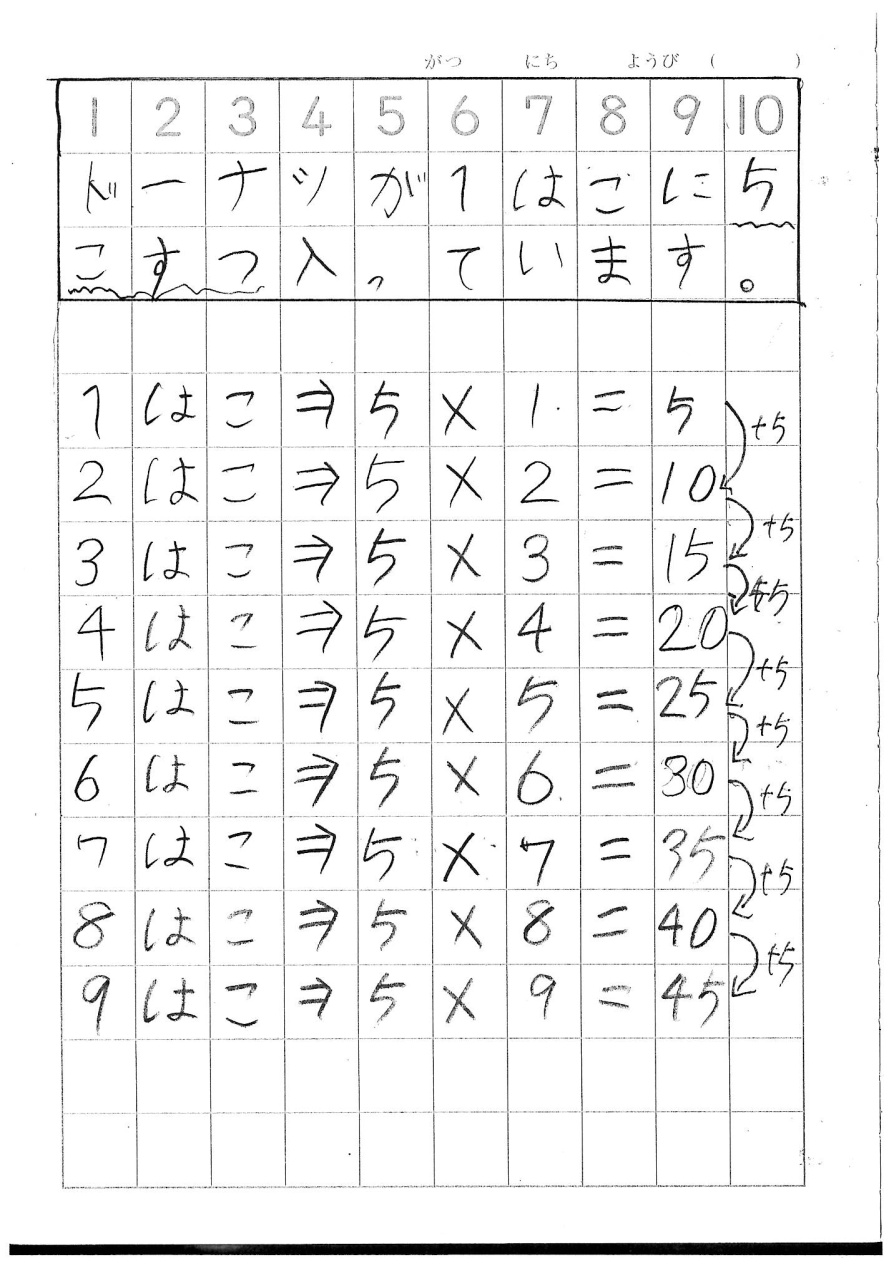 がつ にち ようび ( )
1 2 3 4 5 6 7 8 9 10
ドーナツが1はこに5
こすつ入っています。
1はこ⇒5×1=5
+5
2はこ⇒5×2=10
+5
3はこ⇒5×3=15
+5
4はこ⇒5×4=20
+5
5はこ⇒5×5=25
+5
6はこ⇒5×6=30
+5
7はこ⇒5×7=35
+5
8はこ⇒5×8=40
+5
9はこ⇒5×9=45